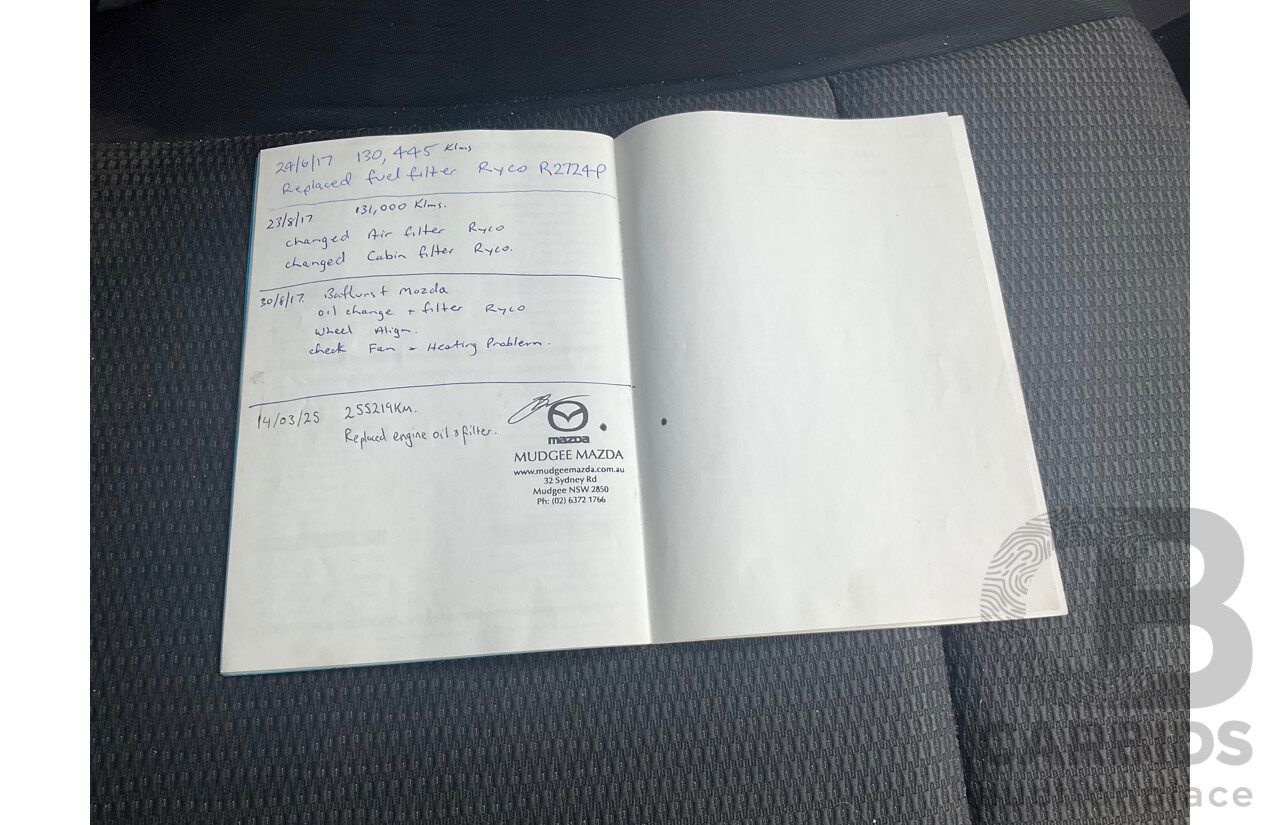 24/6/17 130,445 Klms
Replaced fuel filter Ryco R2724P
23/8/17 131,000 Klms.
changed Air filter Ryco
changed Cabin filter Ryco.
30/8/17. Bathurst Mazda
oil change + filter Ryco
Wheel Align.
check Fan + Heating Problem.
14/03/25 255219KM.
Replaced engine oil & filter.
mazda
MUDGEE MAZDA
www.mudgeemazda.com.au
32 Sydney Rd
Mudgee NSW 2850
Ph: (02) 6372 1766